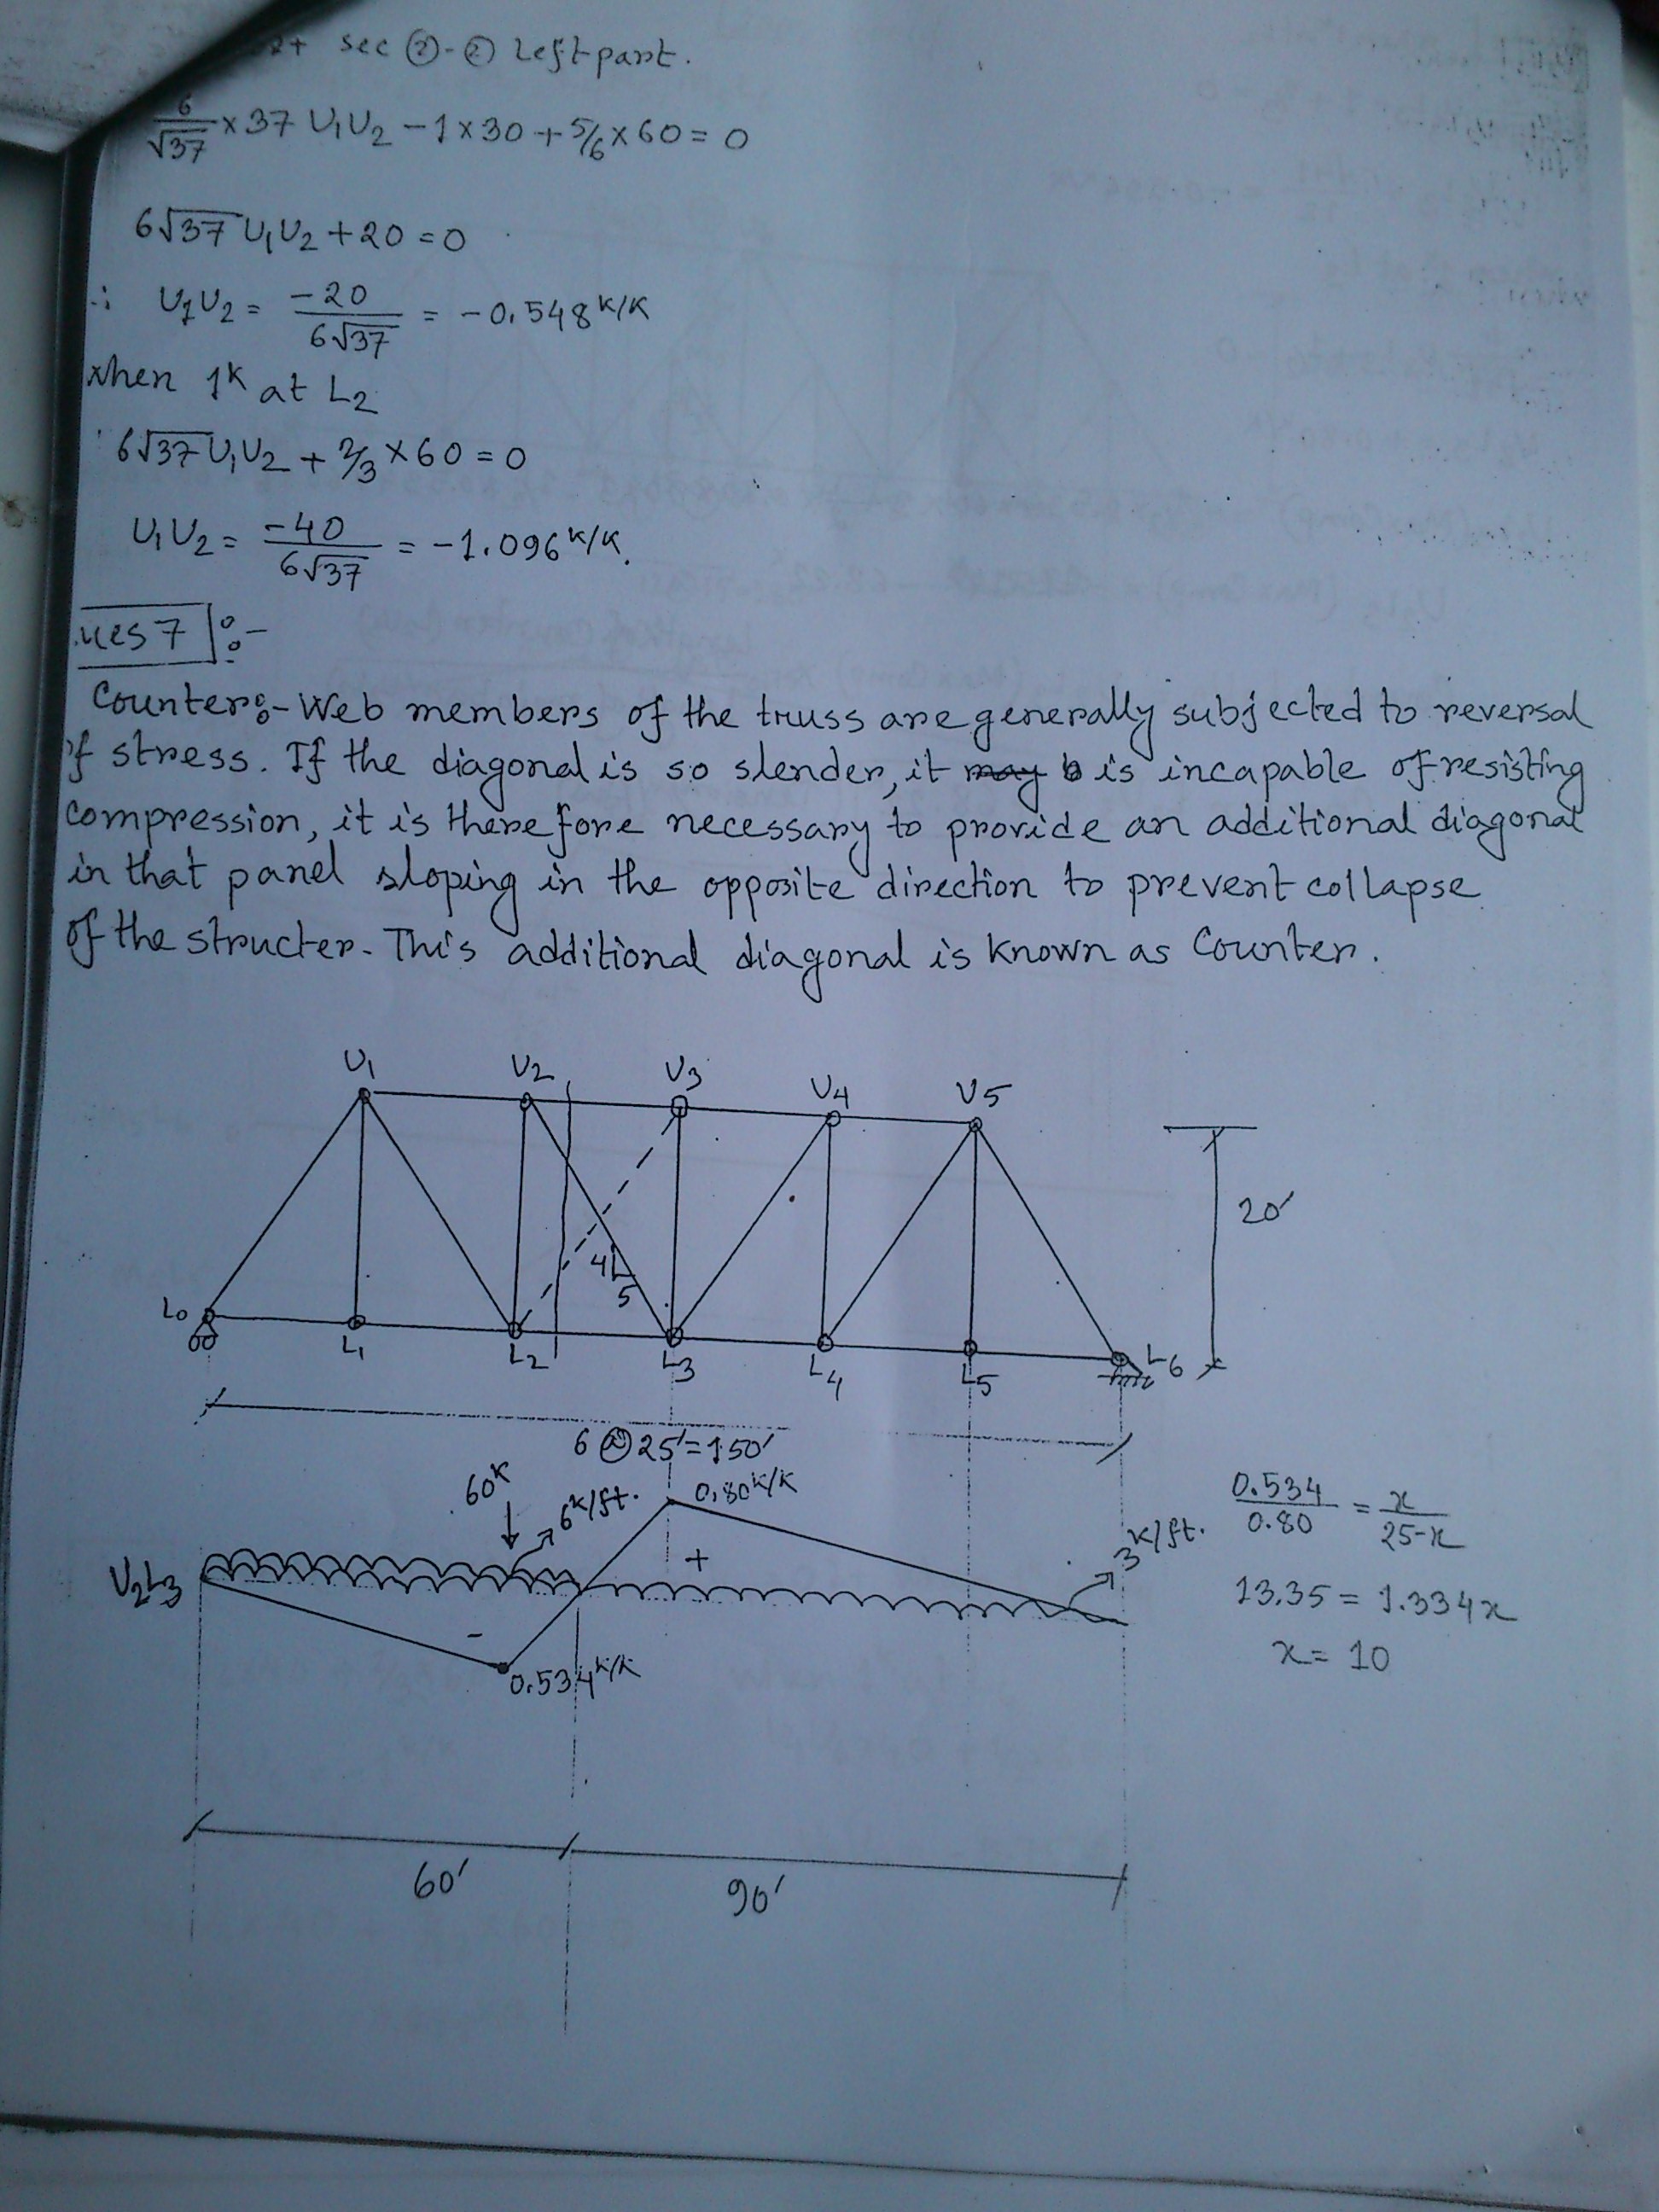 sec ②-② Left part.
6/√37 × 37 U₁U₂ - 1×30 + 5/6 × 60 = 0
6√37 U₁U₂ + 20 = 0
∴ U₁U₂ = -20/6√37 = -0.548 K/K
when 1ᴷ at L₂
6√37 U₁U₂ + 2/3 × 60 = 0
U₁U₂ = -40/6√37 = -1.096 K/K.
ues 7 :-
Counter:- Web members of the truss are generally subjected to reversal
of stress. If the diagonal is so slender, it may b is incapable of resisting
compression, it is therefore necessary to provide an additional diagonal
in that panel sloping in the opposite direction to prevent collapse
of the structer. This additional diagonal is known as Counter.
U₁ U₂ U₃ U₄ U₅
20′
4
5
L₀ L₁ L₂ L₃ L₄ L₅ L₆
6 @ 25′ = 150′
60ᴷ
6 K/ft.
0.80 K/K
3 K/ft.
0.534/0.80 = x/25-x
U₂L₃
+
13.35 = 1.334x
-
0.534 K/K
x = 10
60′ 90′